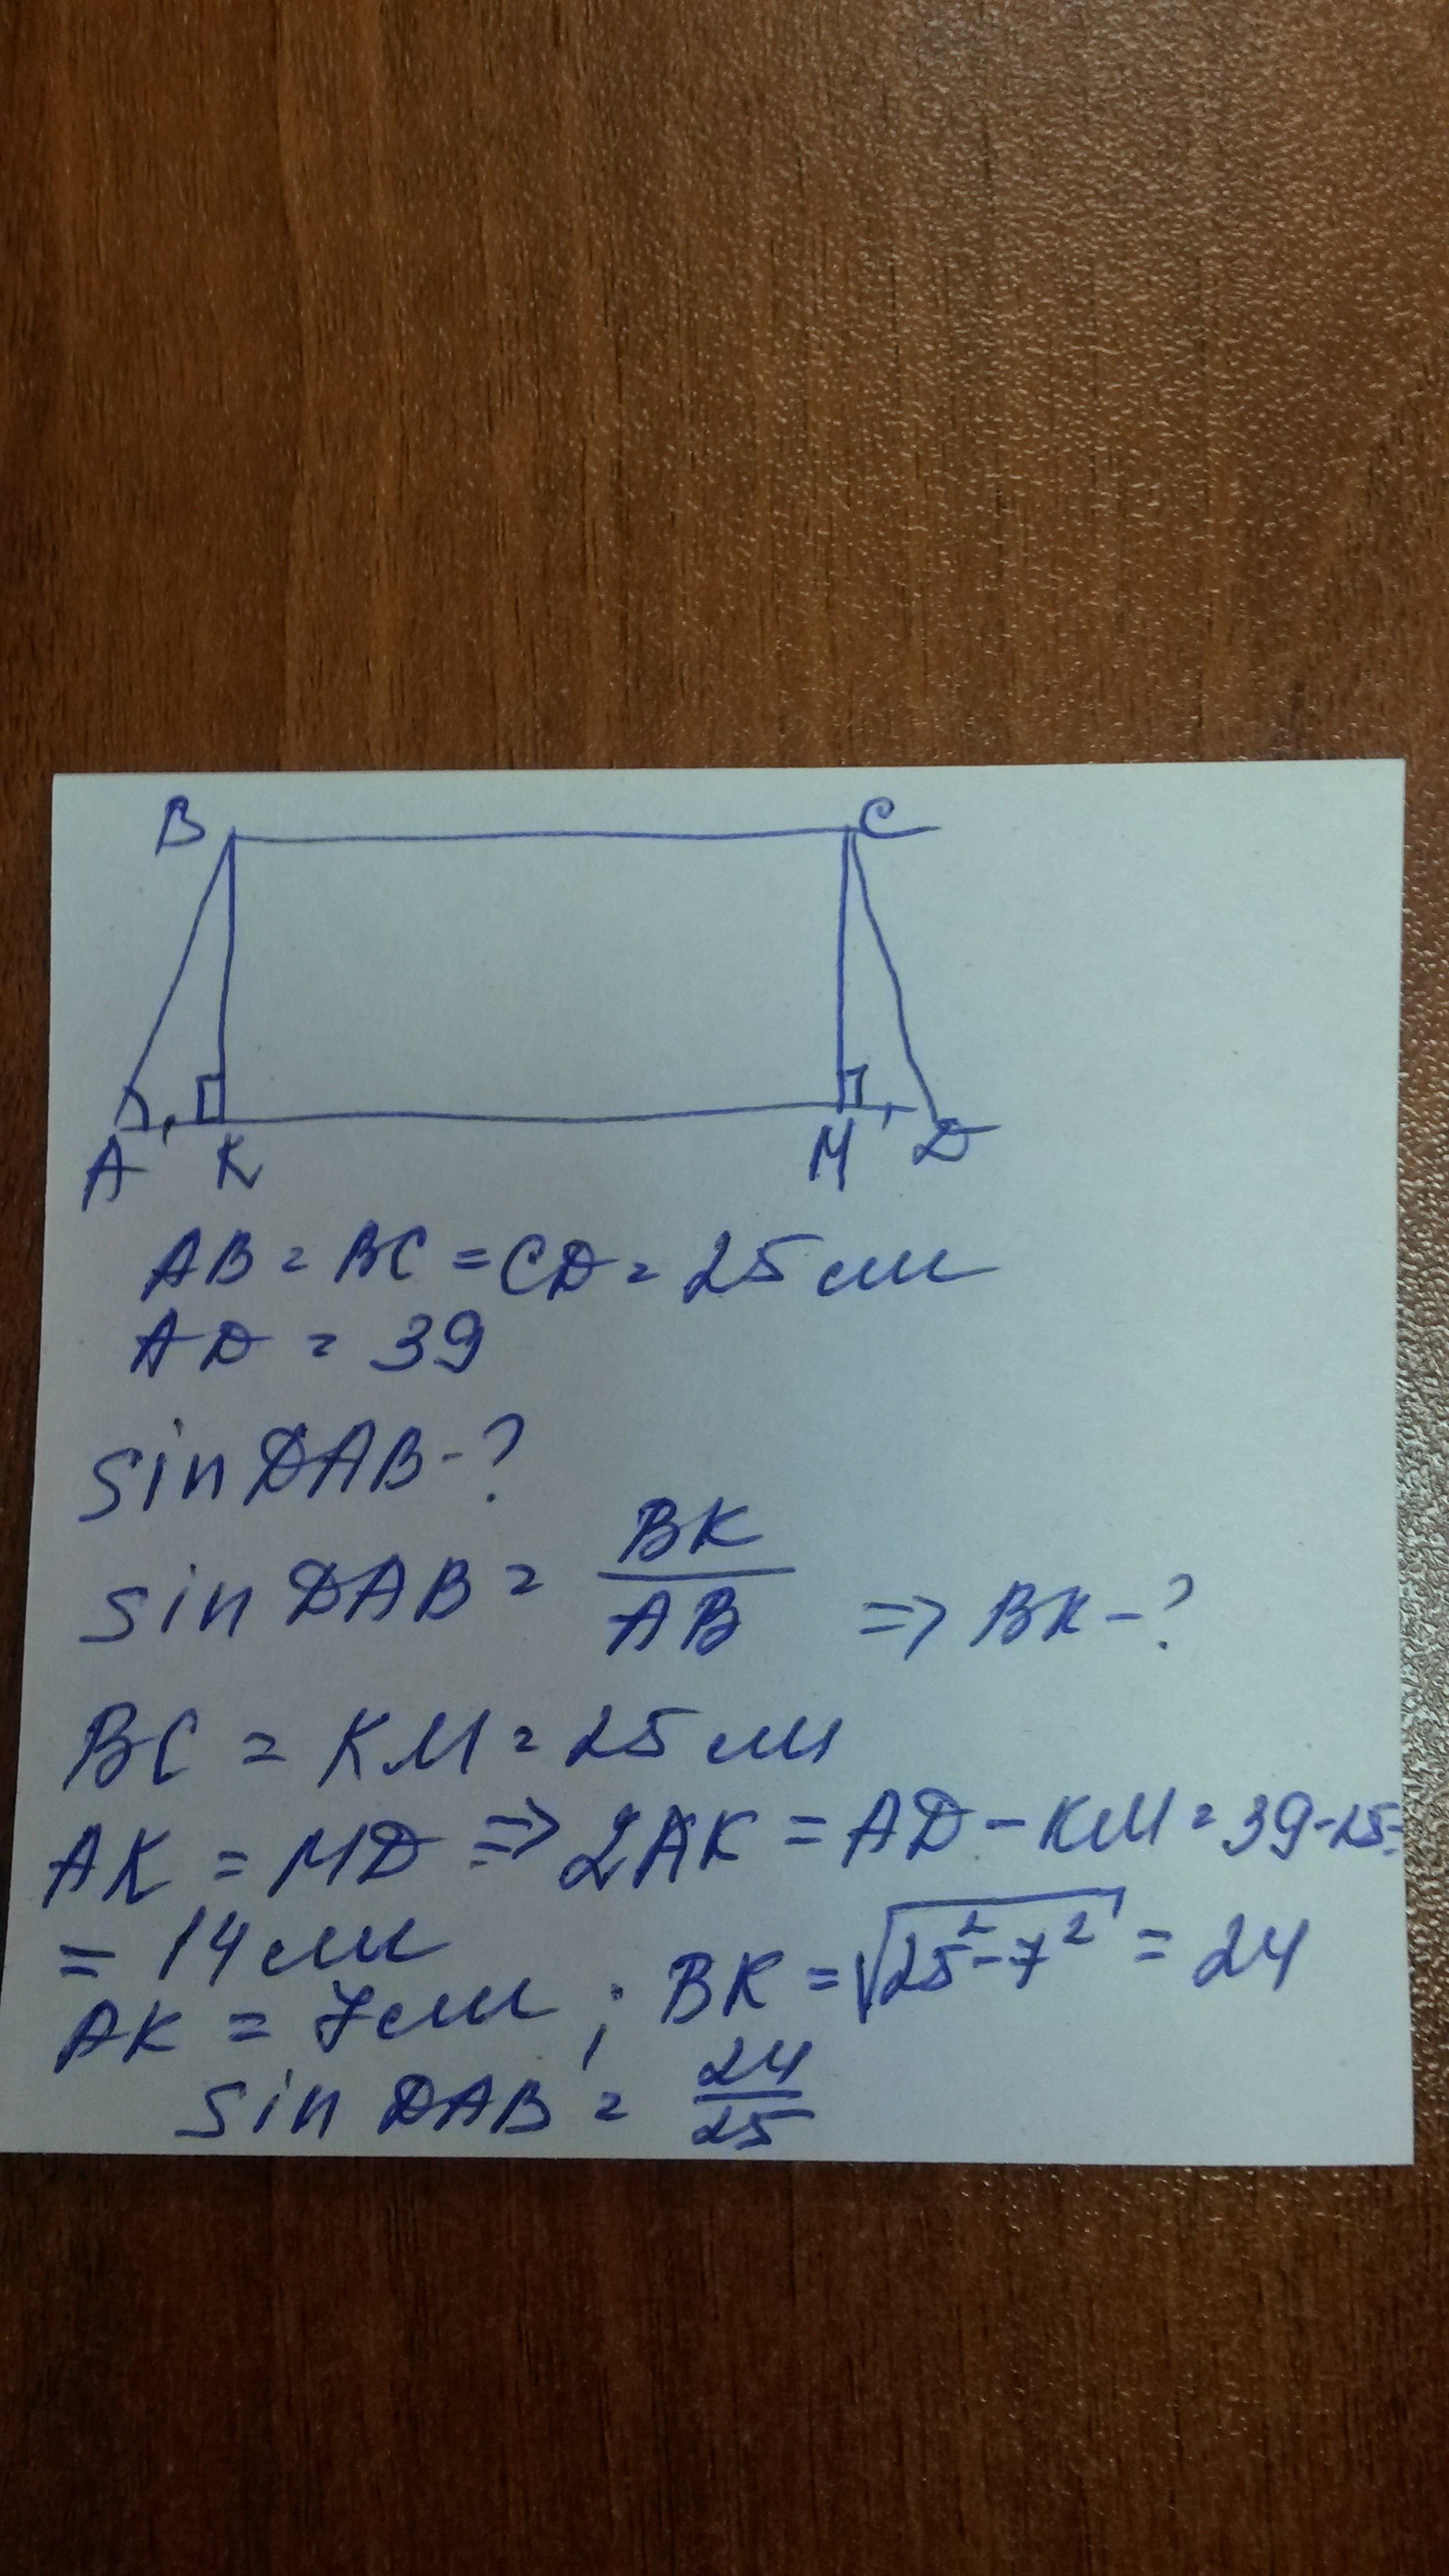 B C
A K M D
AB = BC = CD = 25 см
AD = 39
sin DAB - ?
sin DAB = BK/AB => BK - ?
BC = KM = 25 см
AK = MD => 2AK = AD - KM = 39-25=
= 14 см
AK = 7 см ; BK = √25²-7² = 24
sin DAB = 24/25